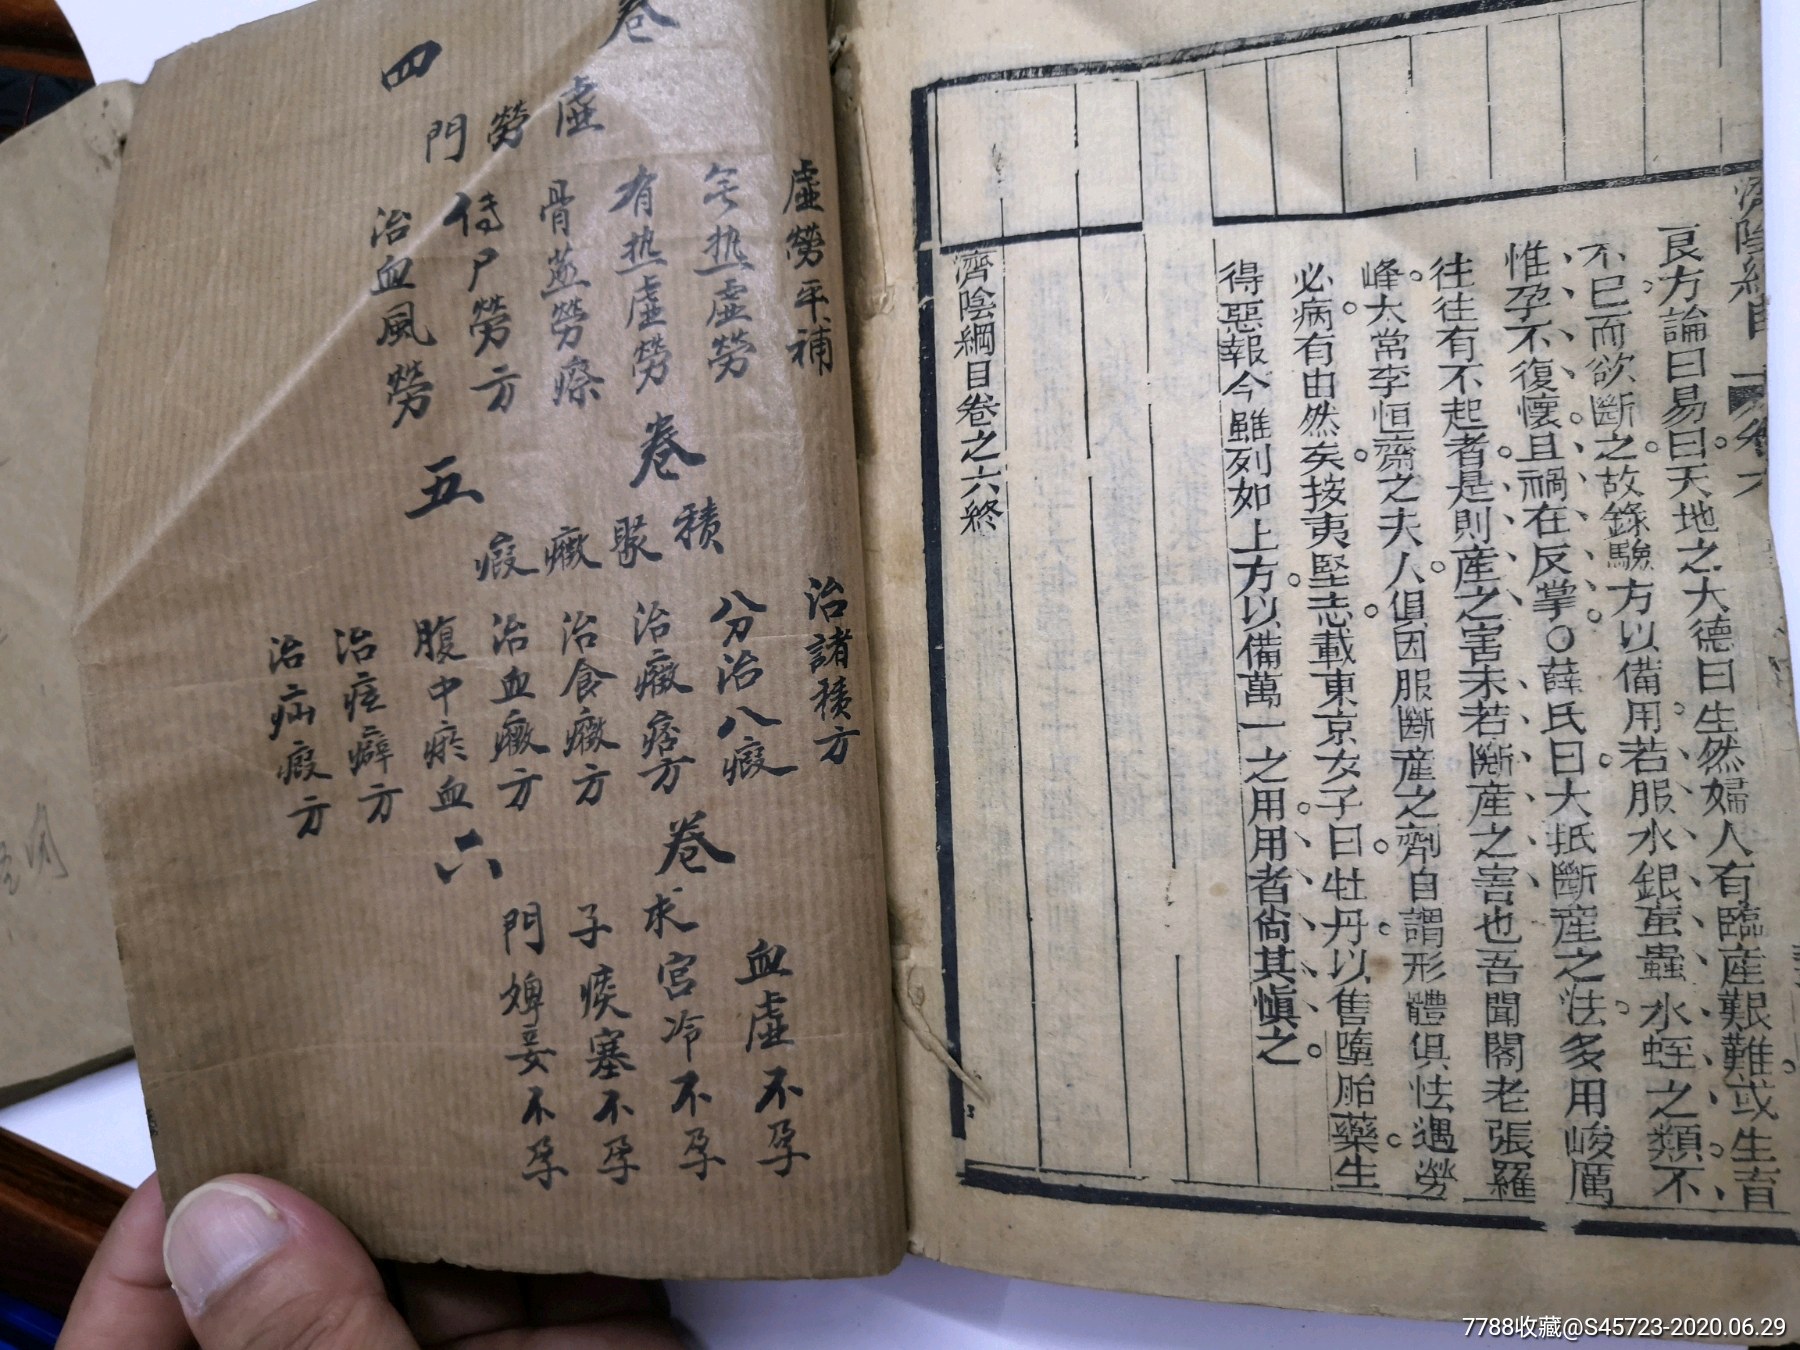 濟陰綱目 卷六
良方論曰易曰天地之大德曰生然婦人有臨產艱難或生育
不已而欲斷之故錄驗方以備用若服水銀䖟蟲水蛭之類不
惟孕不復懷且禍在反掌○薛氏曰大抵斷產之法多用峻厲
往往有不起者是則產之害未若斷產之害也吾聞閣老張羅
峰太常李恒齋之夫人俱因服斷產之劑自謂形體俱怯遇勞
必病有由然矣按夷堅志載東京女子曰牡丹以售墮胎藥生
得惡報今雖列如上方以備萬一之用用者尙其慎之
濟陰綱目卷之六終
卷四
虛勞門
虛勞平補
无热虛勞
有热虛勞
骨蒸勞瘵
傳尸勞方
治血風勞
卷五
積聚癥瘕
治諸積方
分治八瘕
治癥痞方
治食癥方
治血癥方
腹中瘀血
治痃癖方
治疝瘕方
卷六
求子門
血虛不孕
宮冷不孕
痰塞不孕
婢妾不孕
7788收藏@S45723-2020.06.29